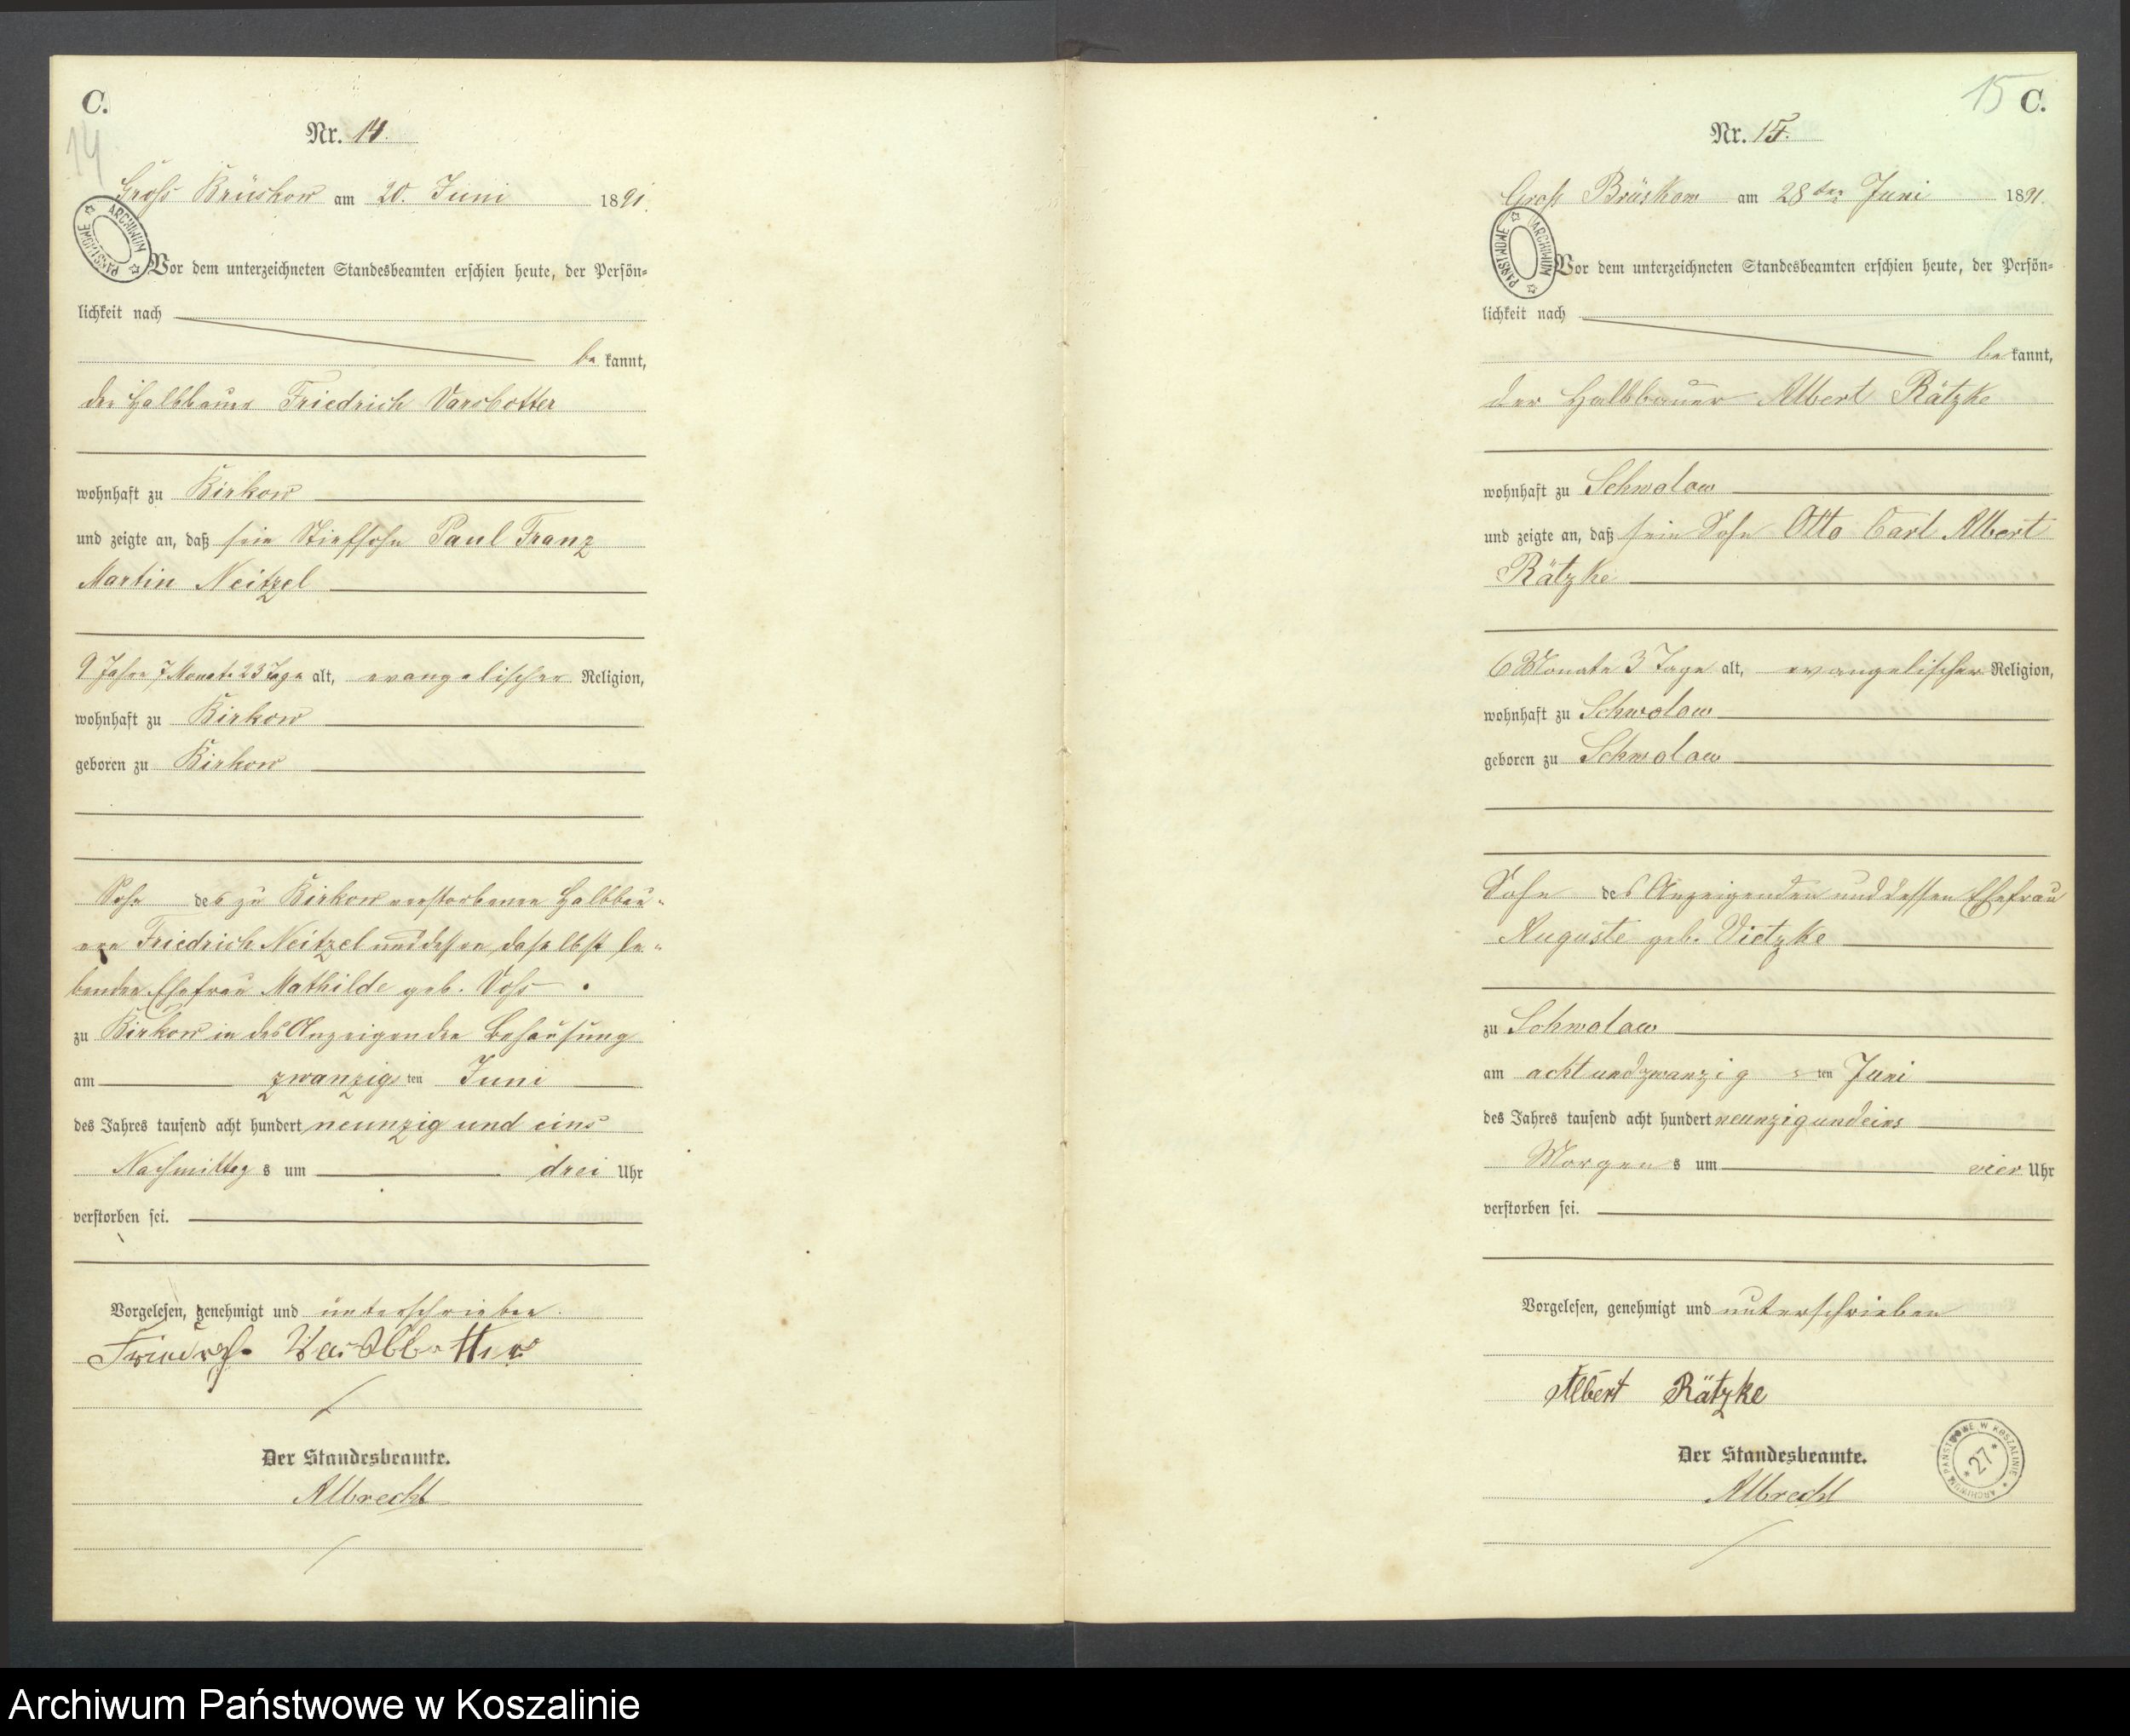 C.
14
Nr. 14.
Groß Brüskow am 20. Juni 1891.
ARCHIWUM PAŃSTWOWE
Vor dem unterzeichneten Standesbeamten erschien heute, der Persön-
lichkeit nach
be kannt,
der Halbbauer Friedrich Varsbotter
wohnhaft zu Birkow
und zeigte an, daß sein Stiefsohn Paul Franz
Martin Neitzel
9 Jahre 7 Monate 23 Tage alt, evangelischer Religion,
wohnhaft zu Birkow
geboren zu Birkow
Sohn des zu Birkow verstorbenen Halbbau-
ern Friedrich Neitzel und dessen daselbst le-
benden Ehefrau Mathilde geb. Voß
zu Birkow in des Anzeigenden Behausung
am zwanzig ten Juni
des Jahres tausend acht hundert neunzig und eins
Nachmittag s um drei Uhr
verstorben sei.
Vorgelesen, genehmigt und unterschrieben.
Friedrich
Der Standesbeamte.
Albrecht
15 C.
Nr. 15.
Groß Brüskow am 28ten Juni 1891.
ARCHIWUM PAŃSTWOWE
Vor dem unterzeichneten Standesbeamten erschien heute, der Persön-
lichkeit nach
be kannt,
der Halbbauer Albert Rätzke
wohnhaft zu Schwolow
und zeigte an, daß sein Sohn Otto Carl Albert
Rätzke
6 Monate 3 Tage alt, evangelischer Religion,
wohnhaft zu Schwolow
geboren zu Schwolow
Sohn des Anzeigenden und dessen Ehefrau
Auguste geb. Vietzke
zu Schwolow
am achtundzwanzig sten Juni
des Jahres tausend acht hundert neunzigundeins
Morgen s um vier Uhr
verstorben sei.
Vorgelesen, genehmigt und unterschrieben
Albert Rätzke
Der Standesbeamte.
Albrecht
ARCHIWUM PAŃSTWOWE W KOSZALINIE
* 27 *
Archiwum Państwowe w Koszalinie